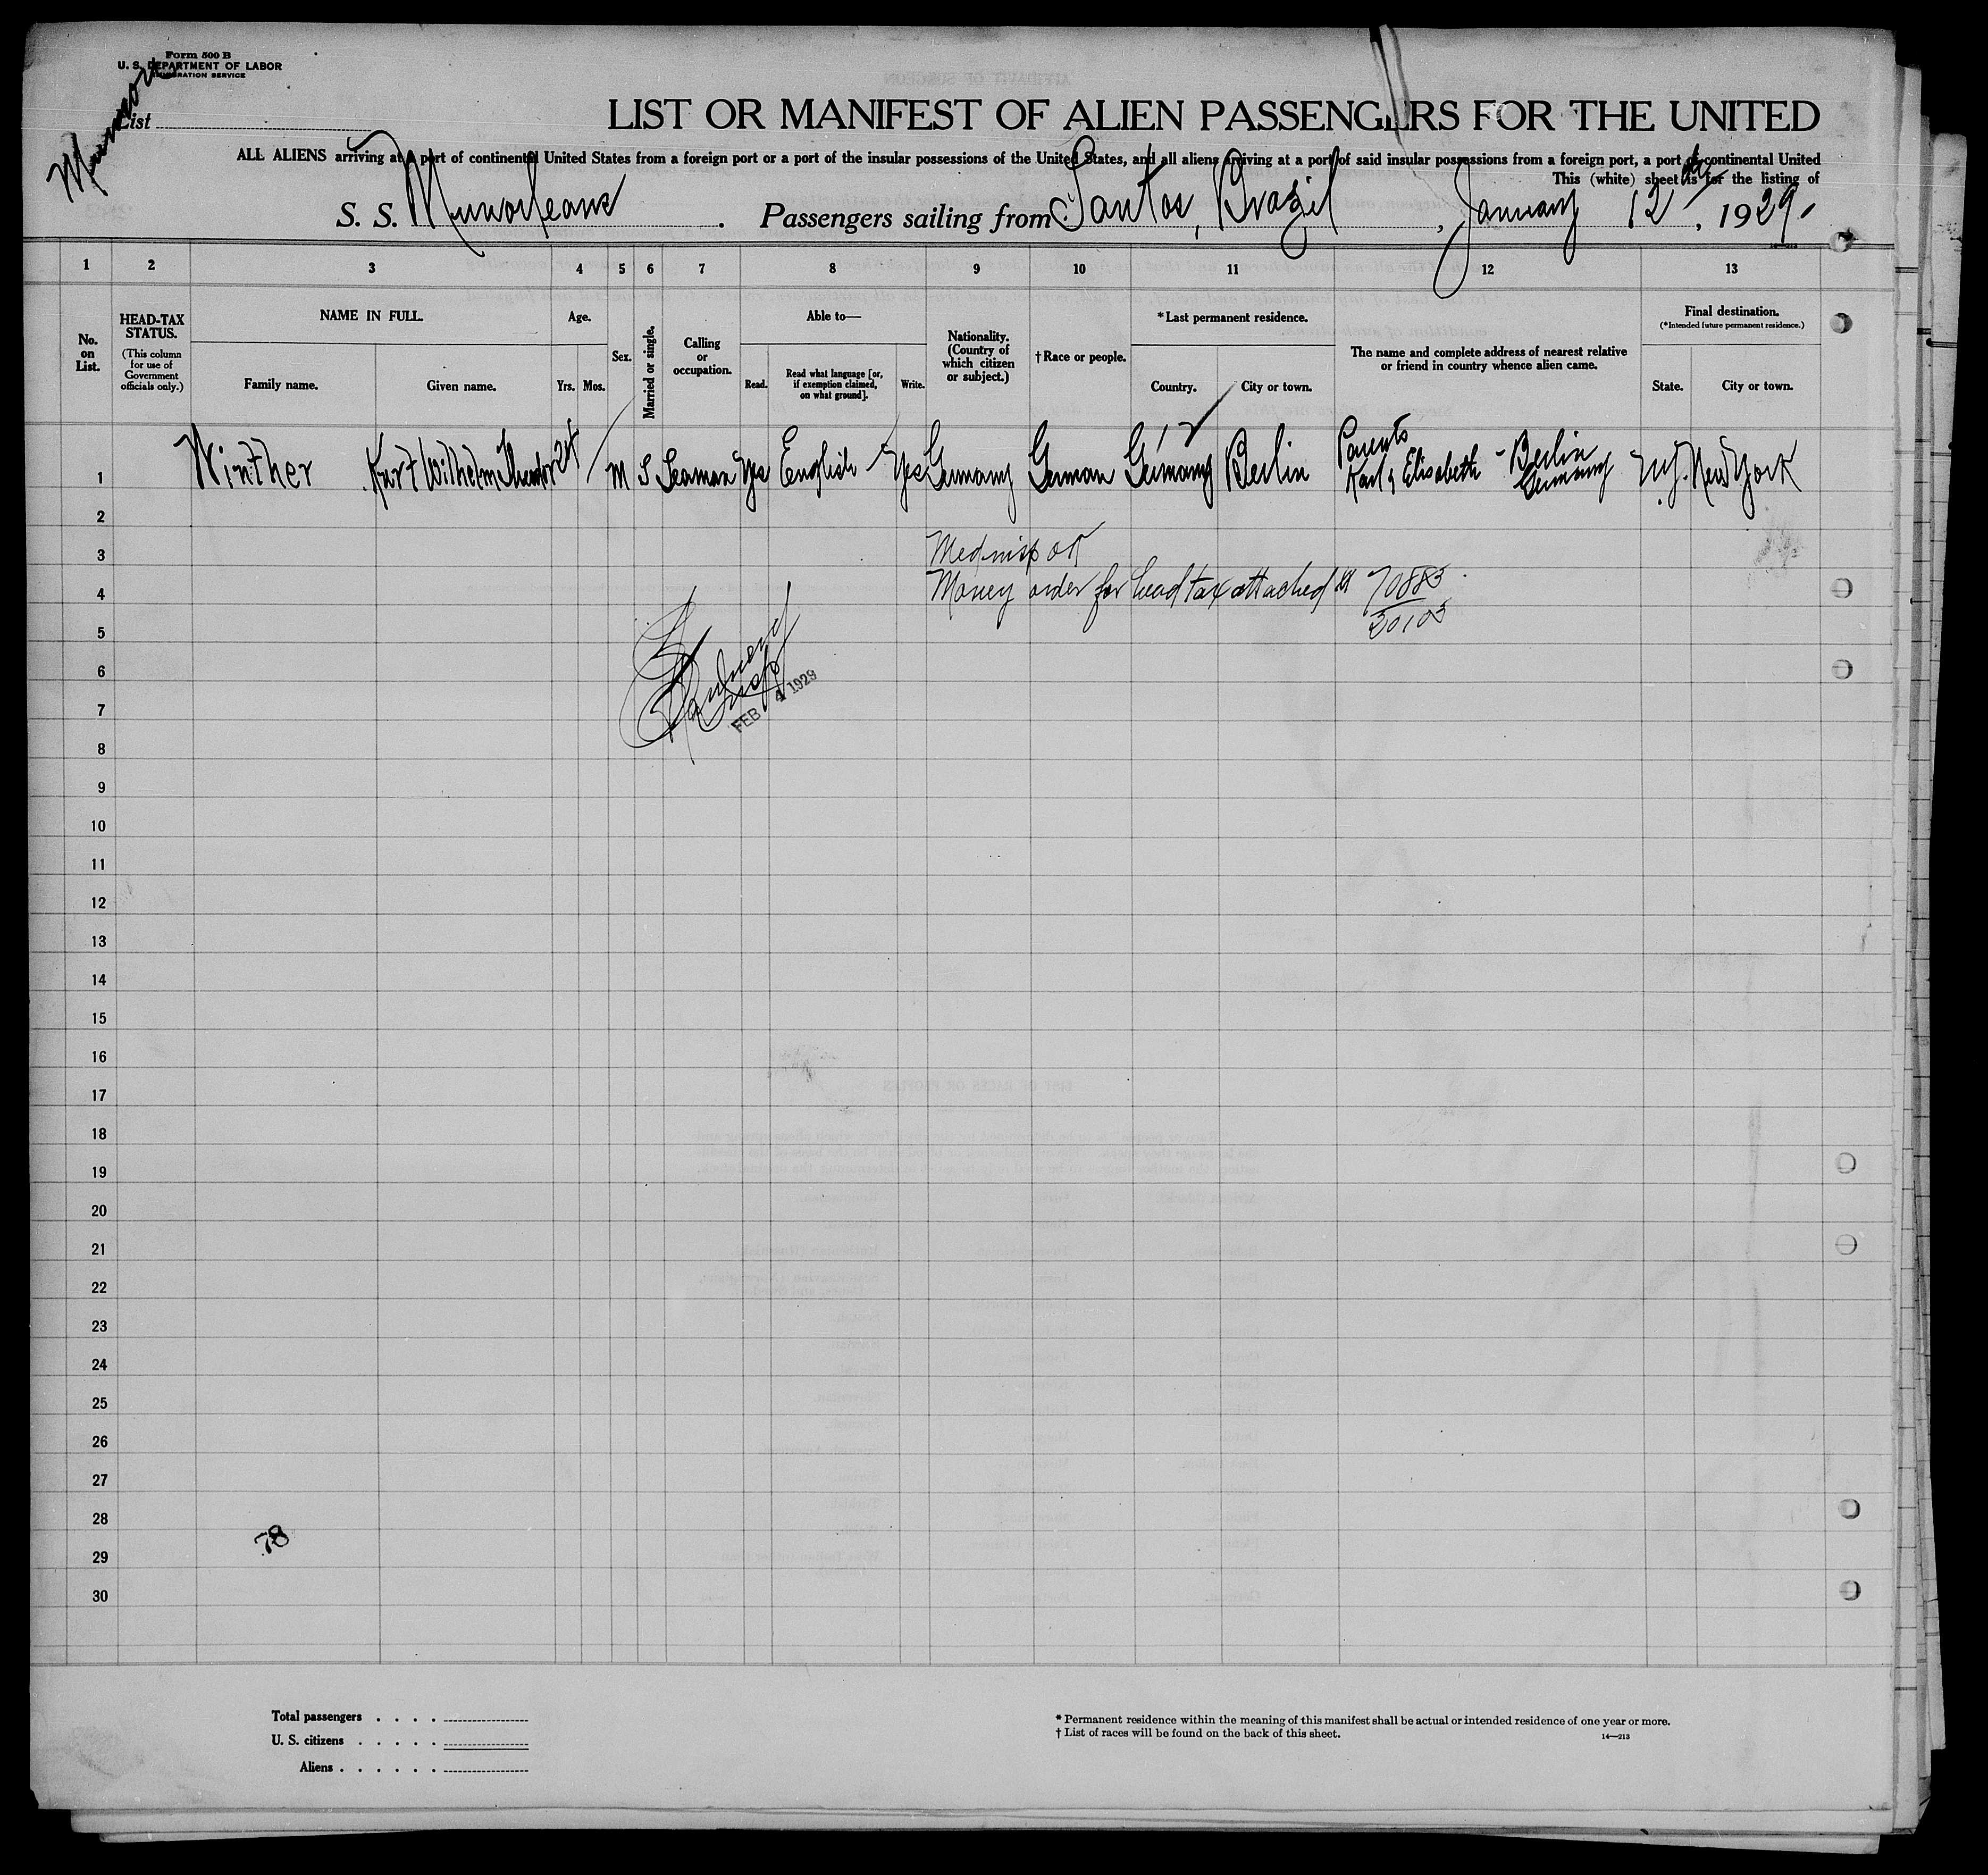 Form 500 B
U. S. DEPARTMENT OF LABOR
IMMIGRATION SERVICE
List
LIST OR MANIFEST OF ALIEN PASSENGERS FOR THE UNITED
ALL ALIENS arriving at a port of continental United States from a foreign port or a port of the insular possessions of the United States, and all aliens arriving at a port of said insular possessions from a foreign port, a port of continental United
This (white) sheet is for the listing of
S. S. Munorleans . Passengers sailing from Santos, Brazil , January 12th , 1929.
1 2 3 4 5 6 7 8 9 10 11 12 13
No. on List.
HEAD-TAX STATUS.
(This column for use of Government officials only.)
NAME IN FULL.
Family name. Given name.
Age.
Yrs. Mos.
Sex.
Married or single.
Calling or occupation.
Able to—
Read. Read what language [or, if exemption claimed, on what ground]. Write.
Nationality. (Country of which citizen or subject.)
† Race or people.
* Last permanent residence.
Country. City or town.
The name and complete address of nearest relative or friend in country whence alien came.
Final destination.
(*Intended future permanent residence.)
State. City or town.
1 Winther Kurt Wilhelm Theodor 24 M S Seaman Yes English Yes Germany German Germany Berlin Parents Karl & Elisabeth - Berlin Germany N.Y. New York
2
3
Money order for head tax attached 70883
4
30103
5
6
FEB 4 1929
7
8
9
10
11
12
13
14
15
16
17
18
19
20
21
22
23
24
25
26
27
28
78
29
30
Total passengers . . . .
U. S. citizens . . . . .
Aliens . . . . . .
* Permanent residence within the meaning of this manifest shall be actual or intended residence of one year or more.
† List of races will be found on the back of this sheet.
14—213